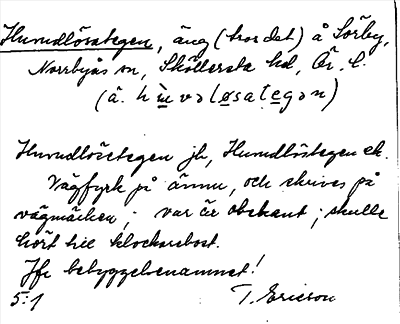 Humdlösategen, äng (tros det) å Sörby,
Norrbyås sn, Sköllersta hd, Ör. l.
Humdlösetegen jb, Humdlöstegen ek.
Vägfyrk på ännu, och skrives på
vägmärken; var är obekant; skulle
hört till klockarebost.
Jfr bebyggelsenamnet!
5:1 T. Ericson